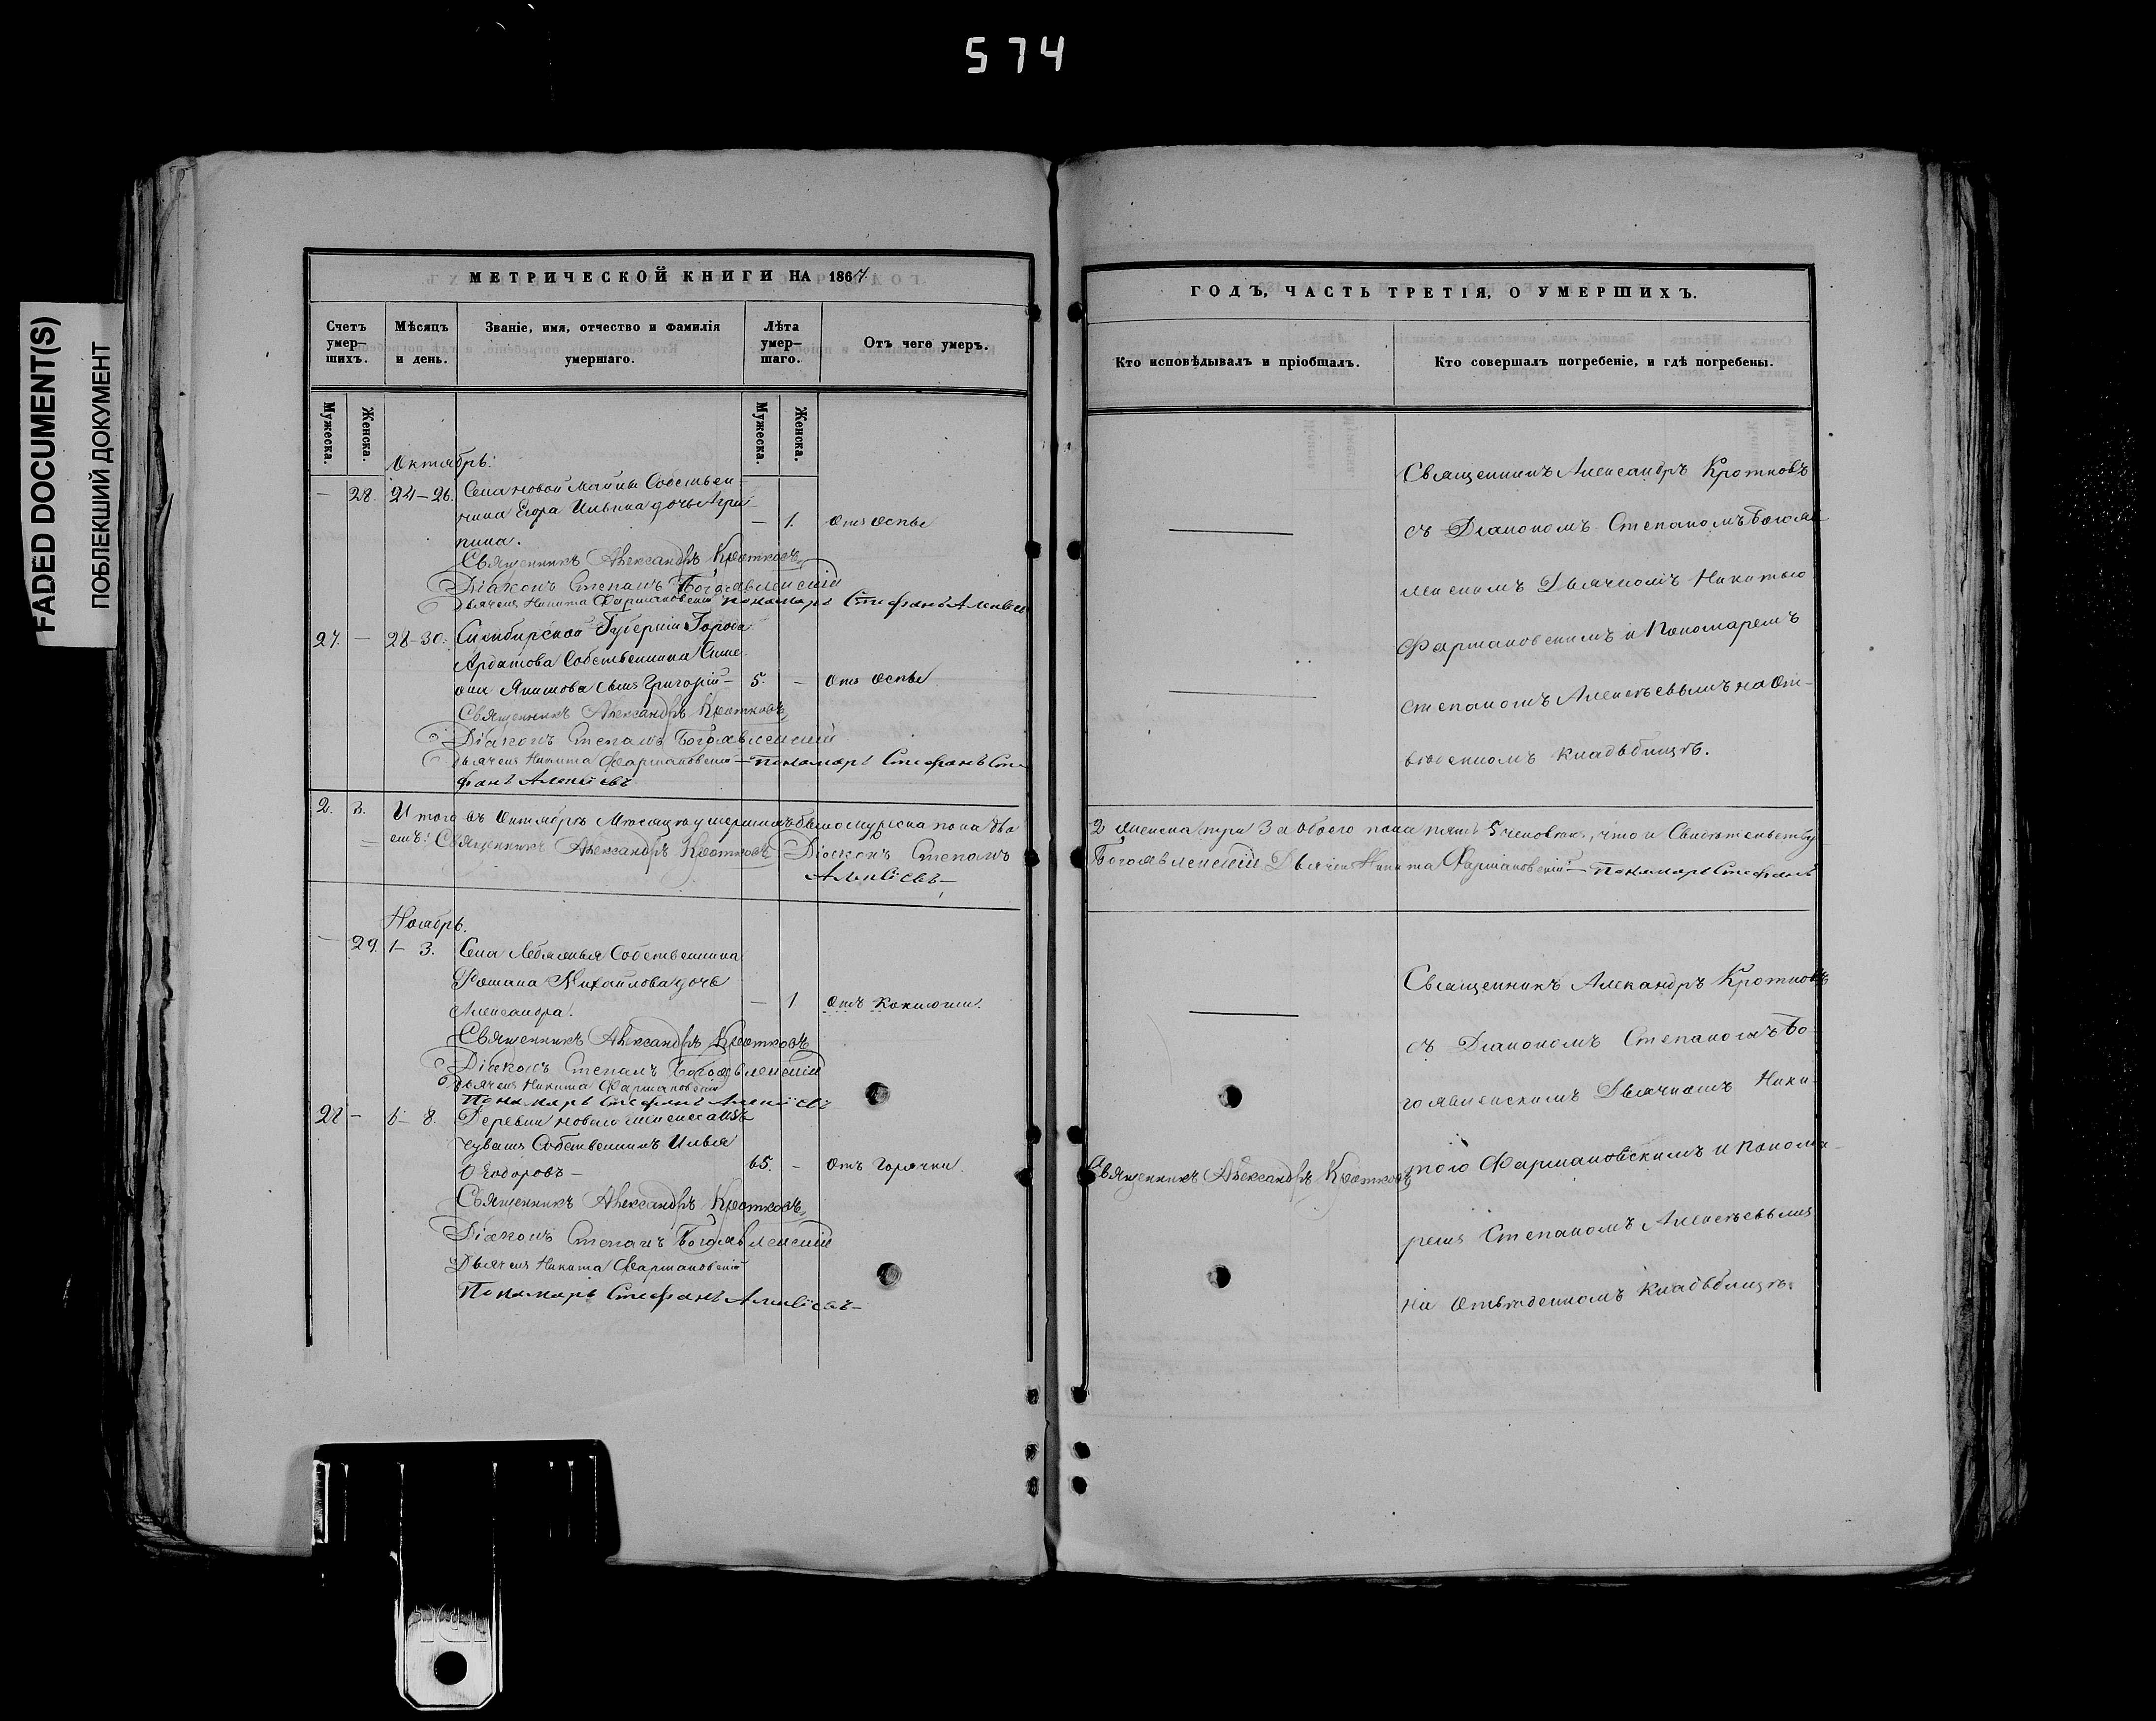 574
FADED DOCUMENT(S)
ПОБЛЕКШИЙ ДОКУМЕНТ
МЕТРИЧЕСКОЙ КНИГИ НА 1867
Счетъ умер-шихъ.
Мѣсяцъ и день.
Званіе, имя, отчество и фамилія умершаго.
Лѣта умер-шаго.
Отъ чего умеръ.
Мужеска.
Женска.
Мужеска.
Женска.
Октябрь.
— 28. 24-26. Села новой Майны Собствен
ника Егора Ильина дочь Агри — 1. отъ оспы
пина.
Священникъ Александръ Кротковъ
Діаконъ Степанъ Богоявленскій
Дьячекъ Никита Фармаковскій Пономарь Стефанъ Алексѣев
27. — 28-30. Симбирской Губерніи Города
Ардатова Собственника Симе
она Якимова сынъ Григорій — 5. — отъ оспы
Священникъ Александръ Кротковъ
Діаконъ Степанъ Богоявленскій
Дьячекъ Никита Фармаковскій — Пономарь Стефанъ Сте
фанъ Алексѣевъ
2. 3. Итого въ Октябрѣ Мѣсяцѣ умершихъ было мужеска пола два
Священникъ Александръ Кротковъ Діаконъ Степанъ
Алексѣевъ —
Ноябрь.
— 29. 1- 3. Села Лебяжья Собственника
Романа Михайлова дочь
Александра. — 1 отъ коклюши.
Священникъ Александръ Кротковъ
Діаконъ Степанъ Богоявленскій
Дьячекъ Никита Фармаковскій
Пономарь Стефанъ Алексѣевъ
28 — 6- 8. Деревни новаго
чувашъ Собственникъ Илья
Ѳеодоровъ — 65. — отъ Горячки.
Священникъ Александръ Кротковъ
Діаконъ Степанъ Богоявленскій
Дьячекъ Никита Фармаковскій
Пономарь Стефанъ Алексѣевъ —
ГОДЪ, ЧАСТЬ ТРЕТІЯ, О УМЕРШИХЪ.
Кто исповѣдывалъ и пріобщалъ.
Кто совершалъ погребеніе, и гдѣ погребены.
Священникъ Александръ Кротковъ
съ Діакономъ Степаномъ Богояв
ленскимъ Дьячкомъ Никитою
Фармаковскимъ и Пономаремъ
Степаномъ Алексѣевымъ на От-
вѣденномъ кладьбищѣ.
2 женска пула 3 а обоего пола пять 5 человѣкъ, что и Свидѣтельству
Богоявленскій Дьячекъ Никита Фармаковскій — Пономарь Стефанъ
Священникъ Алекандръ Кротковъ
съ Діакономъ Степаномъ Бо-
гоявленскимъ Дьячкомъ Ники-
тою Фармаковскимъ и Понома-
Священникъ Александръ Кротковъ
ремъ Степаномъ Алексѣевымъ
на Отвѣденномъ Кладьбищѣ.